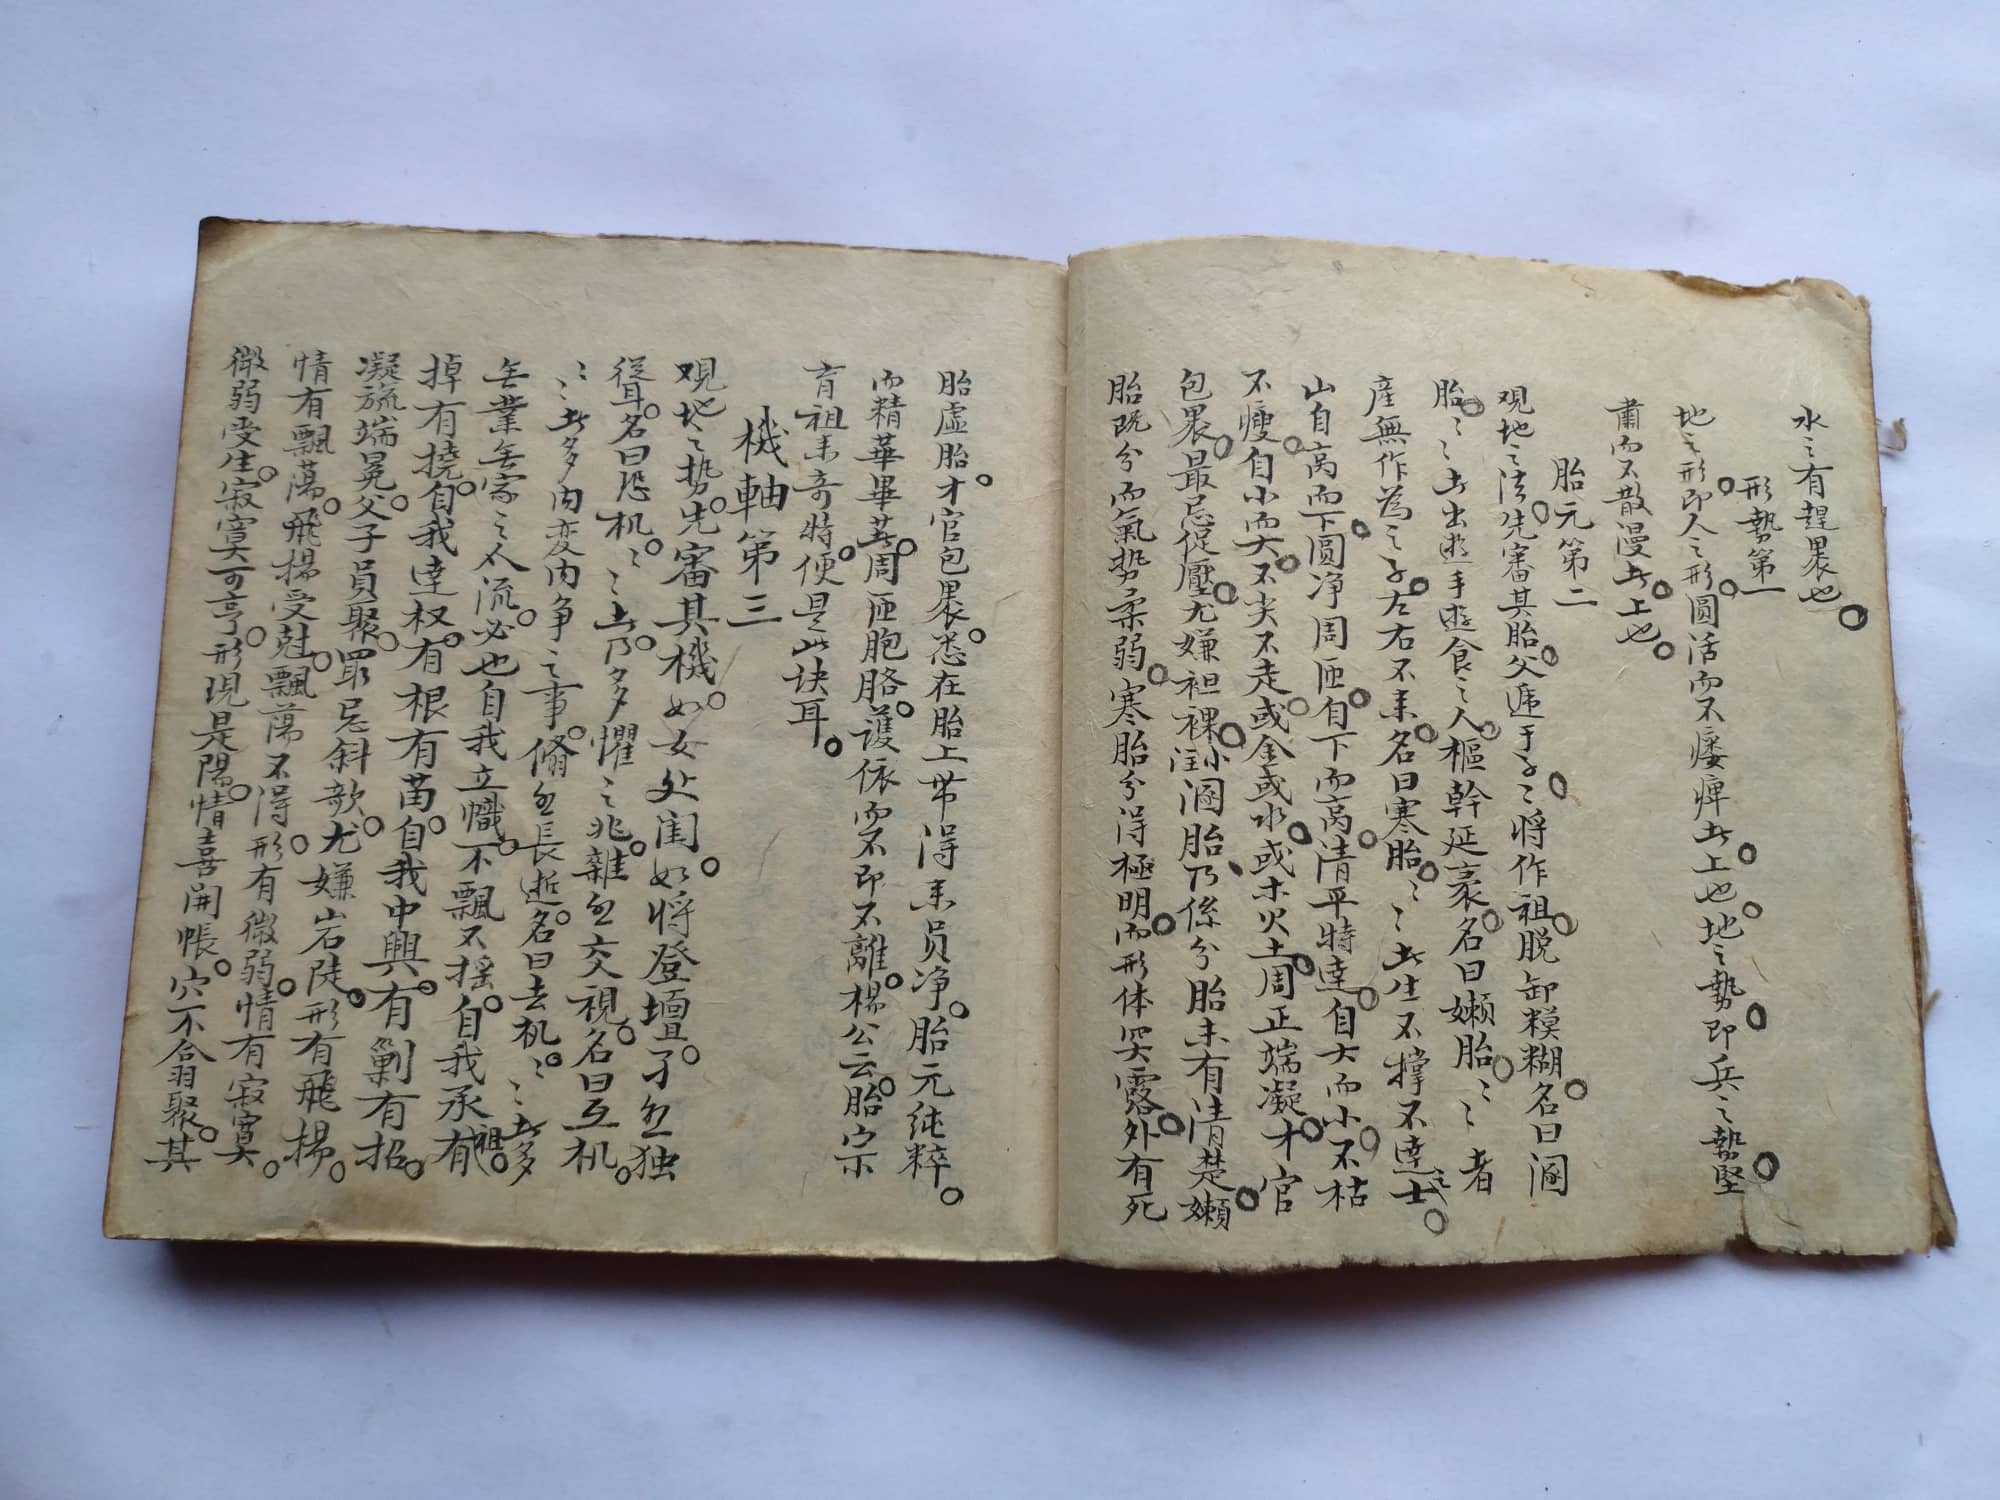 水之有趕裹也。
形勢第一
地之形。即人之形。圓活而不痿痺者。上也。地之勢。即兵之勢。堅
肅而不散漫者。上也。
胎元第二
观地之法。先審其胎。父遞于子。〻將作祖。脱卸糢糊。名曰溷
胎。〻〻者出遊手遊食之人。樞幹延袤。名曰嫩胎。〻〻者
產無作為之子。左右不来。名曰寒胎。〻〻者生不撑不達之士。
山自高而下。圆净周匝。自下而高。清平特達。自大而小。不枯
不瘦。自小而大。不尖不走。或金或水。或木火土。周正端凝。才官
包裹。最忌促壓。尤嫌袒裸。溷胎乃係分胎未有清楚。嫩
胎既分而氣势柔弱。寒胎分得極明。而形体哭露。外有死
胎虛胎。才官包裹。悉在胎上带得来員净。胎元纯粹。
而精華畢其。周匝胞胳。護依而不即不離。楊公云。胎宗
育祖来奇特。便是此诀耳。
機軸第三
观地之势。先審其機。如女处闺。如將登壇。孑然独
聳。名曰恐机。〻〻者。乃多懼之兆。雜然交視。名曰互机。
〻〻者多内变内争之事。脩然長逝。名曰去机。〻〻者多
無業無家之人流。必也自我立幟。不飄不摇。自我承祖。有
掉有撓。自我達权。有根有苗。自我中興。有剿有招。
凝旒端冕。父子員聚。最忌斜欹。尤嫌岩陡。形有飛揚。
情有飄蕩。飛揚受尅。飄蕩不得。形有微弱。情有寂寞。
微弱受生。寂寞可亨。形現是陽。情喜開帳。穴不合聚。其